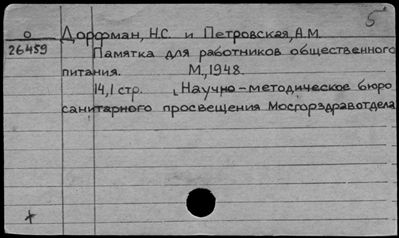 5
О Дорфман, Н.С. и Петровская, А.М.
26459
Памятка для работников общественного
питания. М., 1948.
14,1 стр. (Научно-методическое бюро
санитарного просвещения Мосгорздравотдела
+